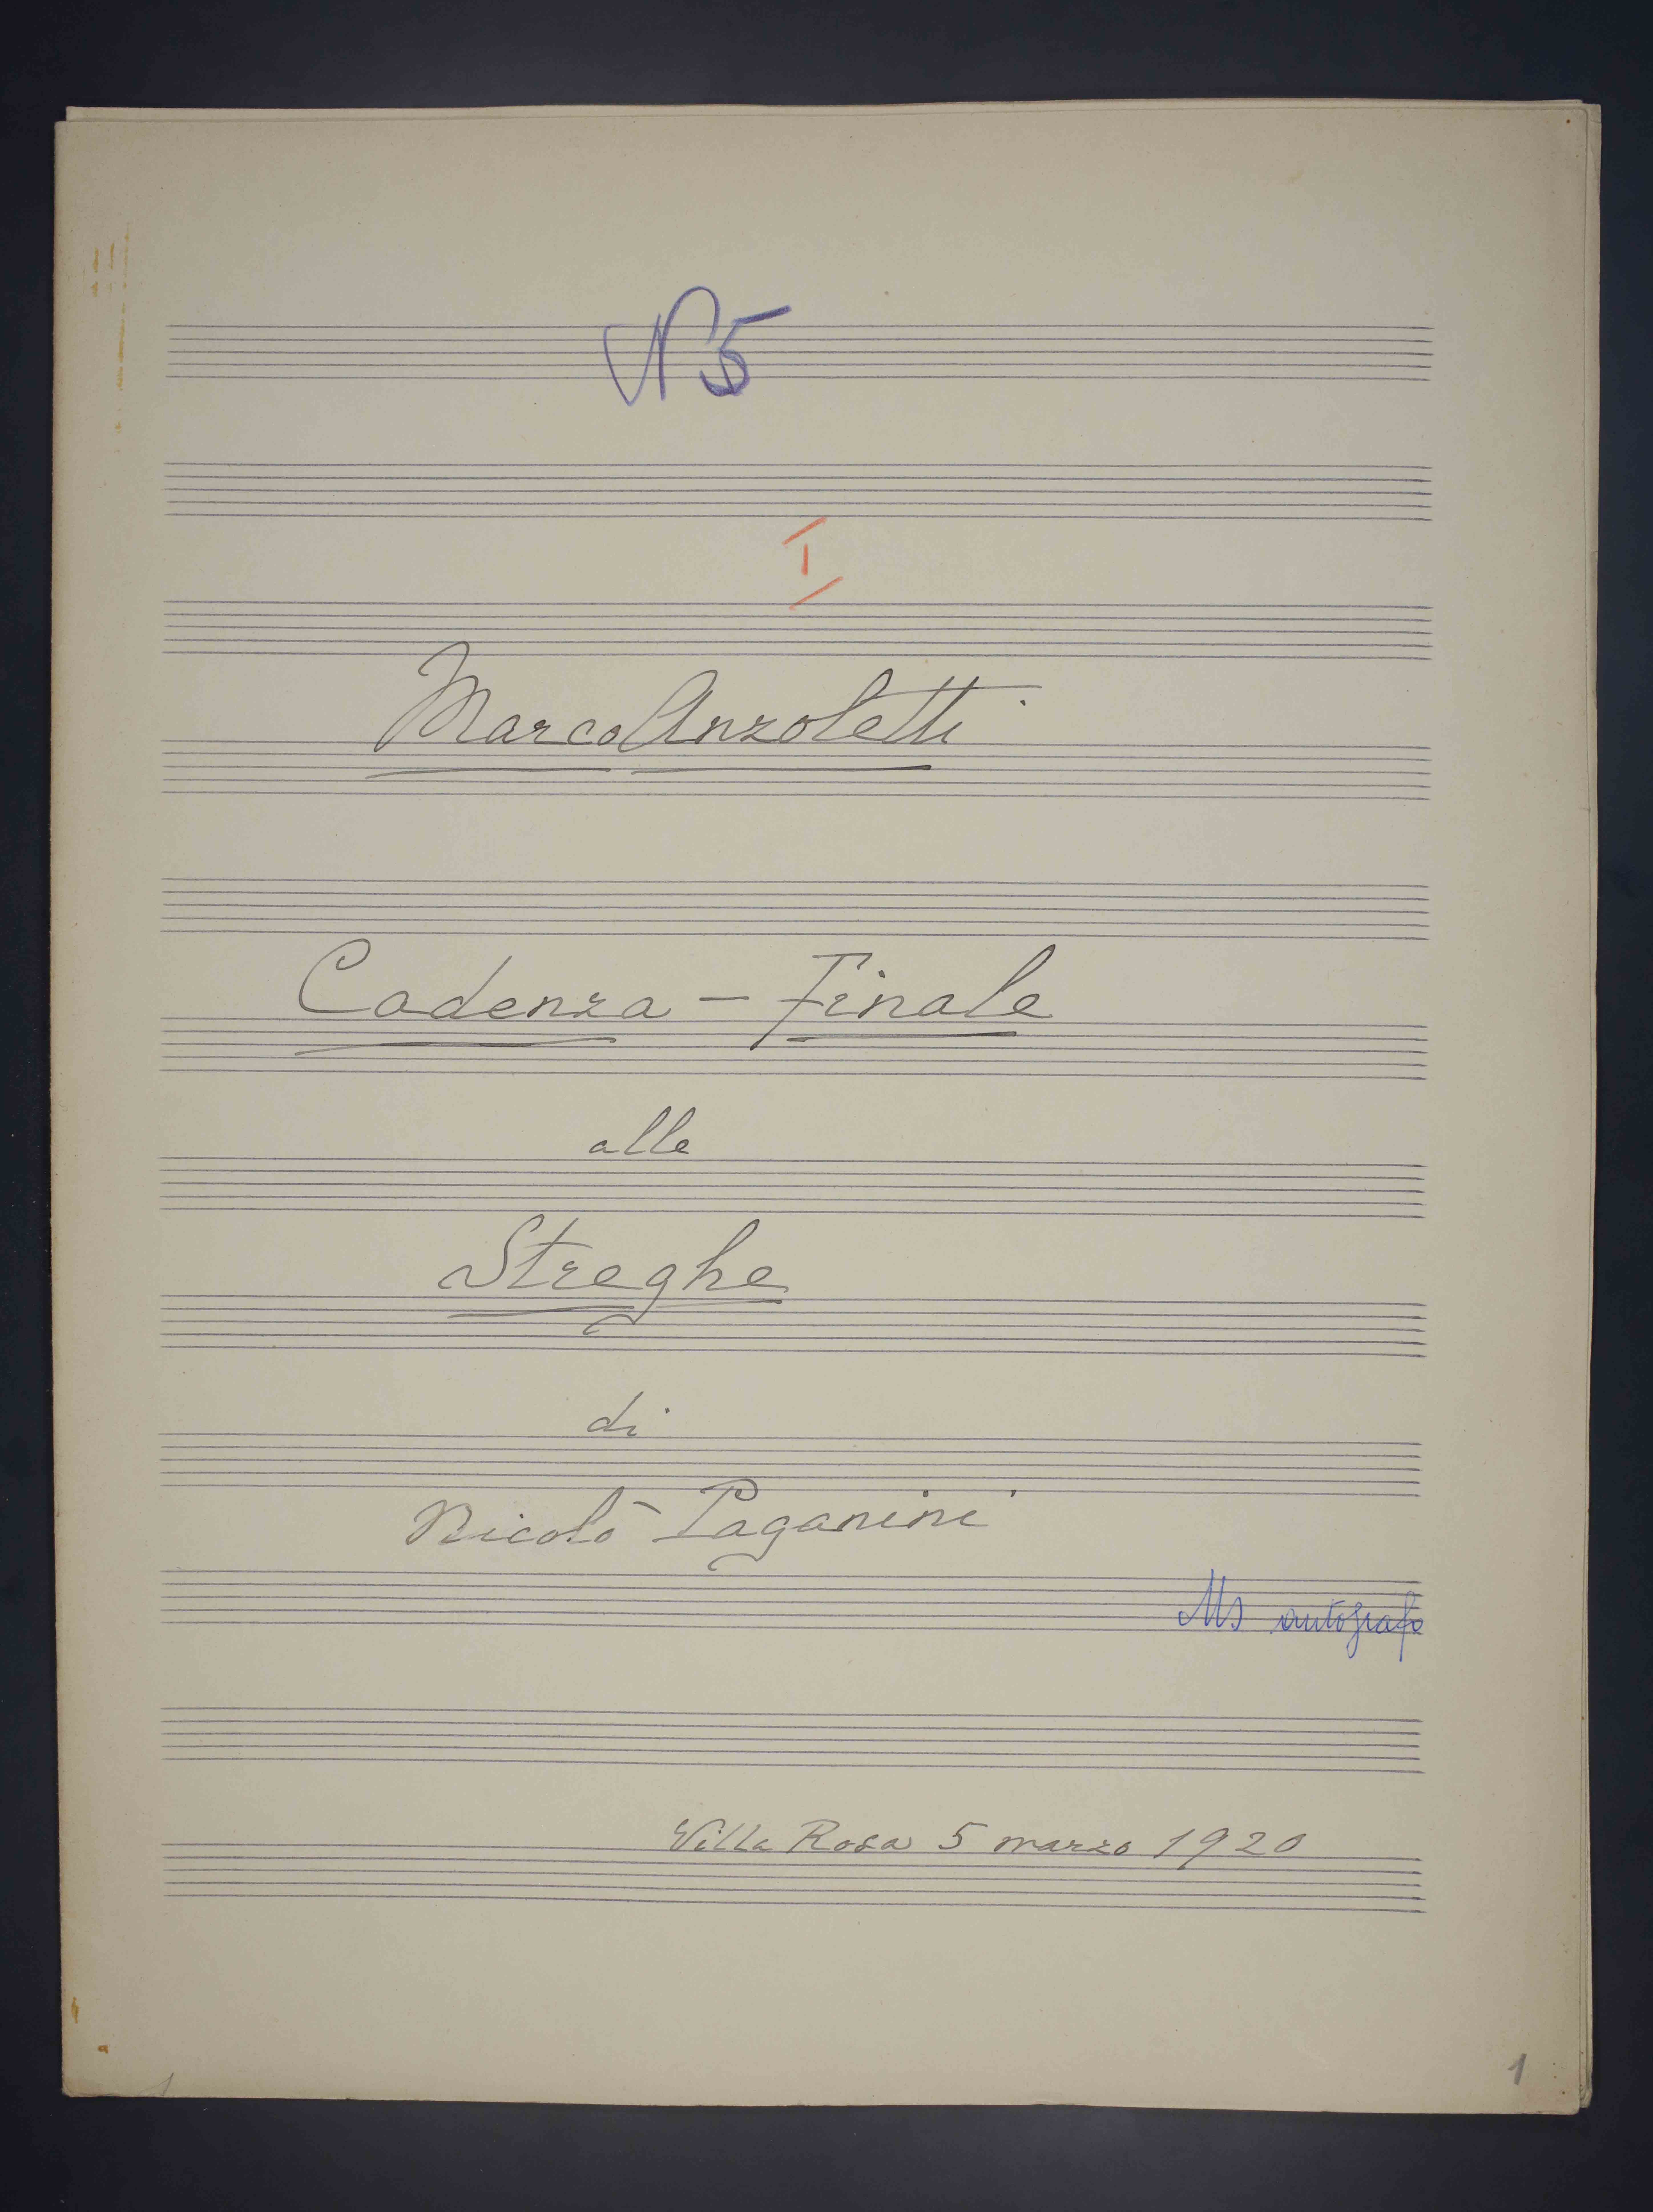 N 5
I
Marco Anzoletti
Cadenza - Finale
alle
Streghe
di
Nicolò Paganini
Ms autografo
Villa Rosa 5 marzo 1920
1